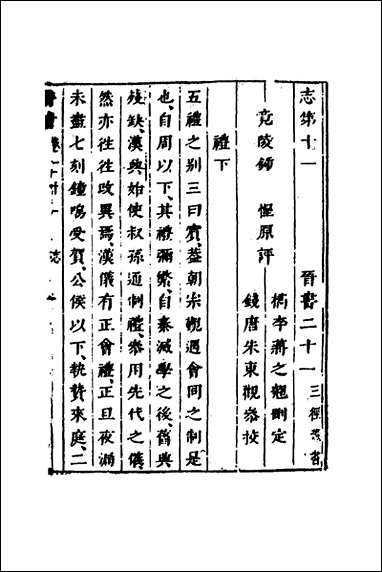 志第十一 晉書二十一 三經
竟陵鍾 惺原評 檇李蔣之翹刪定
錢唐朱東觀叅挍
禮下
五禮之别三曰賓蓋朝宗覲遇會同之制是
也、自周以下、其禮彌繁、自秦滅學之後、舊典
殘缺、漢興始使叔孫通制禮、叅用先代之儀、
然亦徃徃改異焉、漢儀有正會禮、正旦夜漏
未盡七刻鐘鳴受賀、公侯以下、執贄來庭、二
志